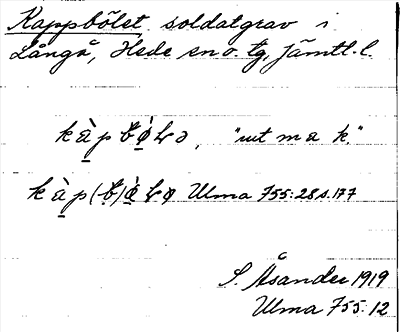 Kappbölet soldatgrav i
Långå, Hede sn o. tg, Jämtl. l.
kàp b̶ø̀Lə, "ut m a k."
kàp(b̶)ø̀Lø Ulma 755:28 s. 177
S. Åsander 1919
Ulma 755:12